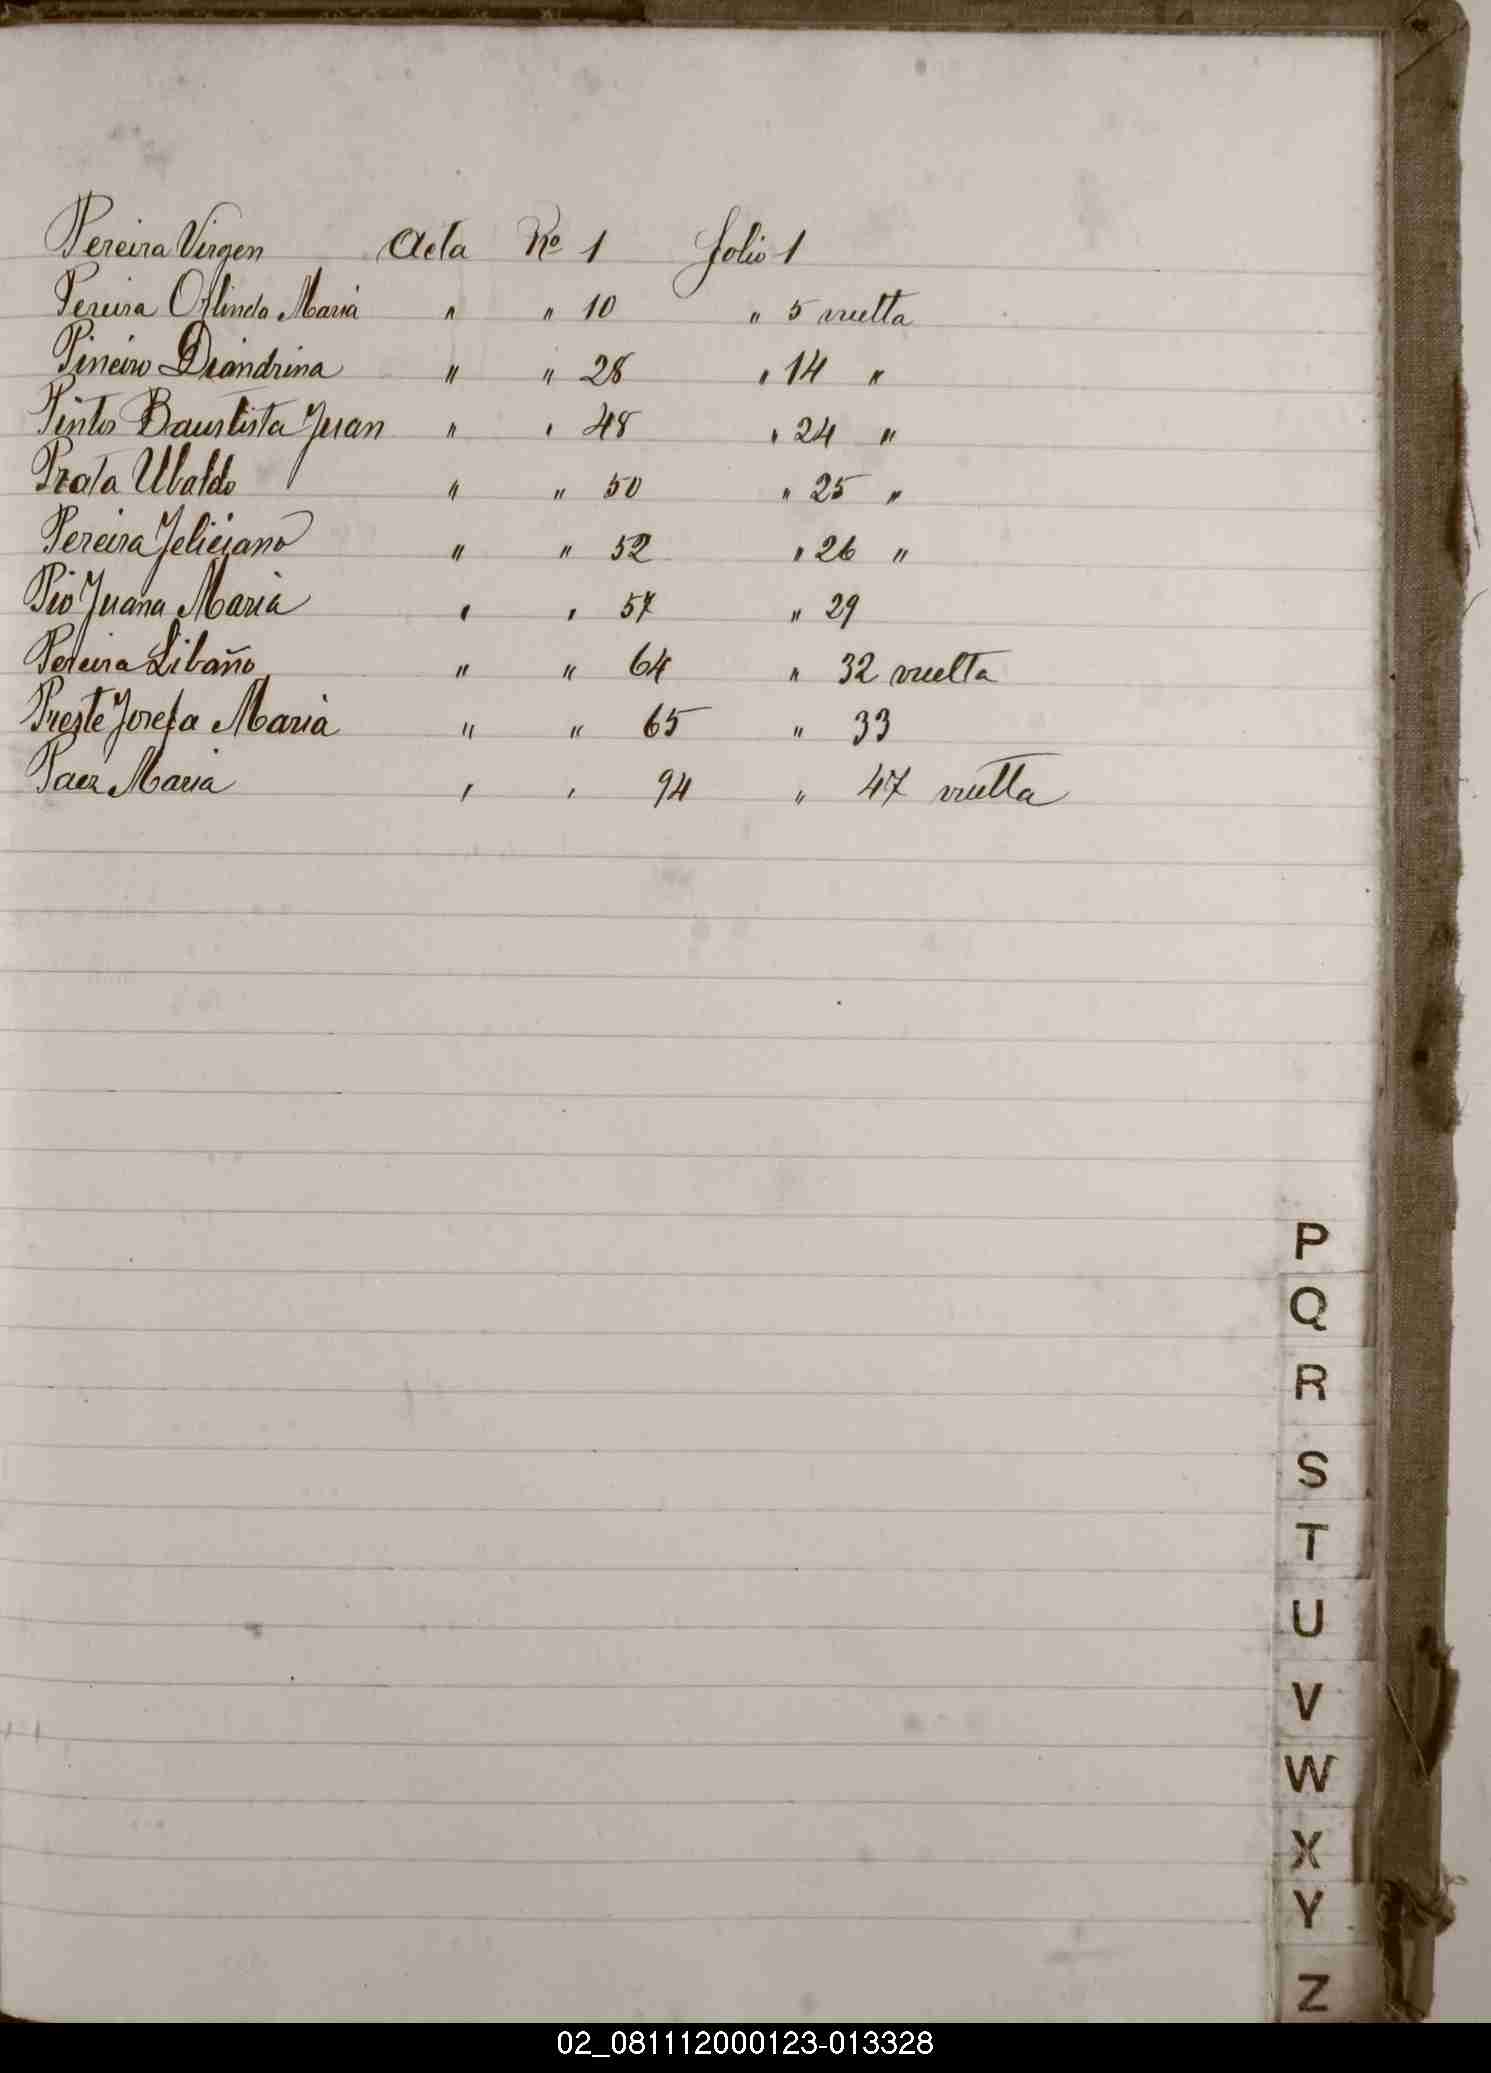 Pereira Virgen Acta No 1 folio 1
Pereira Olinda Maria " " 10 " 5 vuelta
Pineiro Diandrina " " 28 " 14 "
Pintos Bautista Juan " " 48 " 24 "
Prata Ubaldo " " 50 " 25 "
Pereira Feliciano " " 52 " 26 "
Pio Juana Maria " " 57 " 29
Pereira Libaño " " 64 " 32 vuelta
Preste Josefa Maria " " 65 " 33
Paez Maria " " 94 " 47 vuelta
P
Q
R
S
T
U
V
W
X
Y
Z
02_081112000123-013328